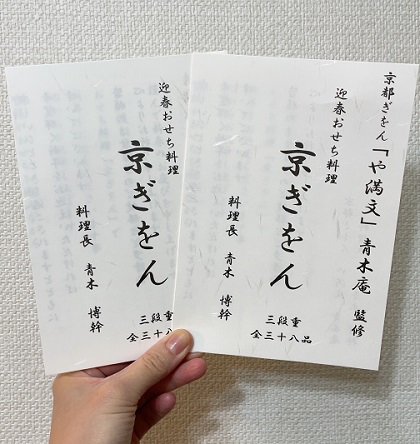 京都ぎをん「や満文」青木庵 監修
迎春おせち料理
京ぎをん
料理長 青木 博幹
三段重
全三十八品
迎春おせち料理
京ぎをん
料理長 青木 博幹
三段重
全三十八品